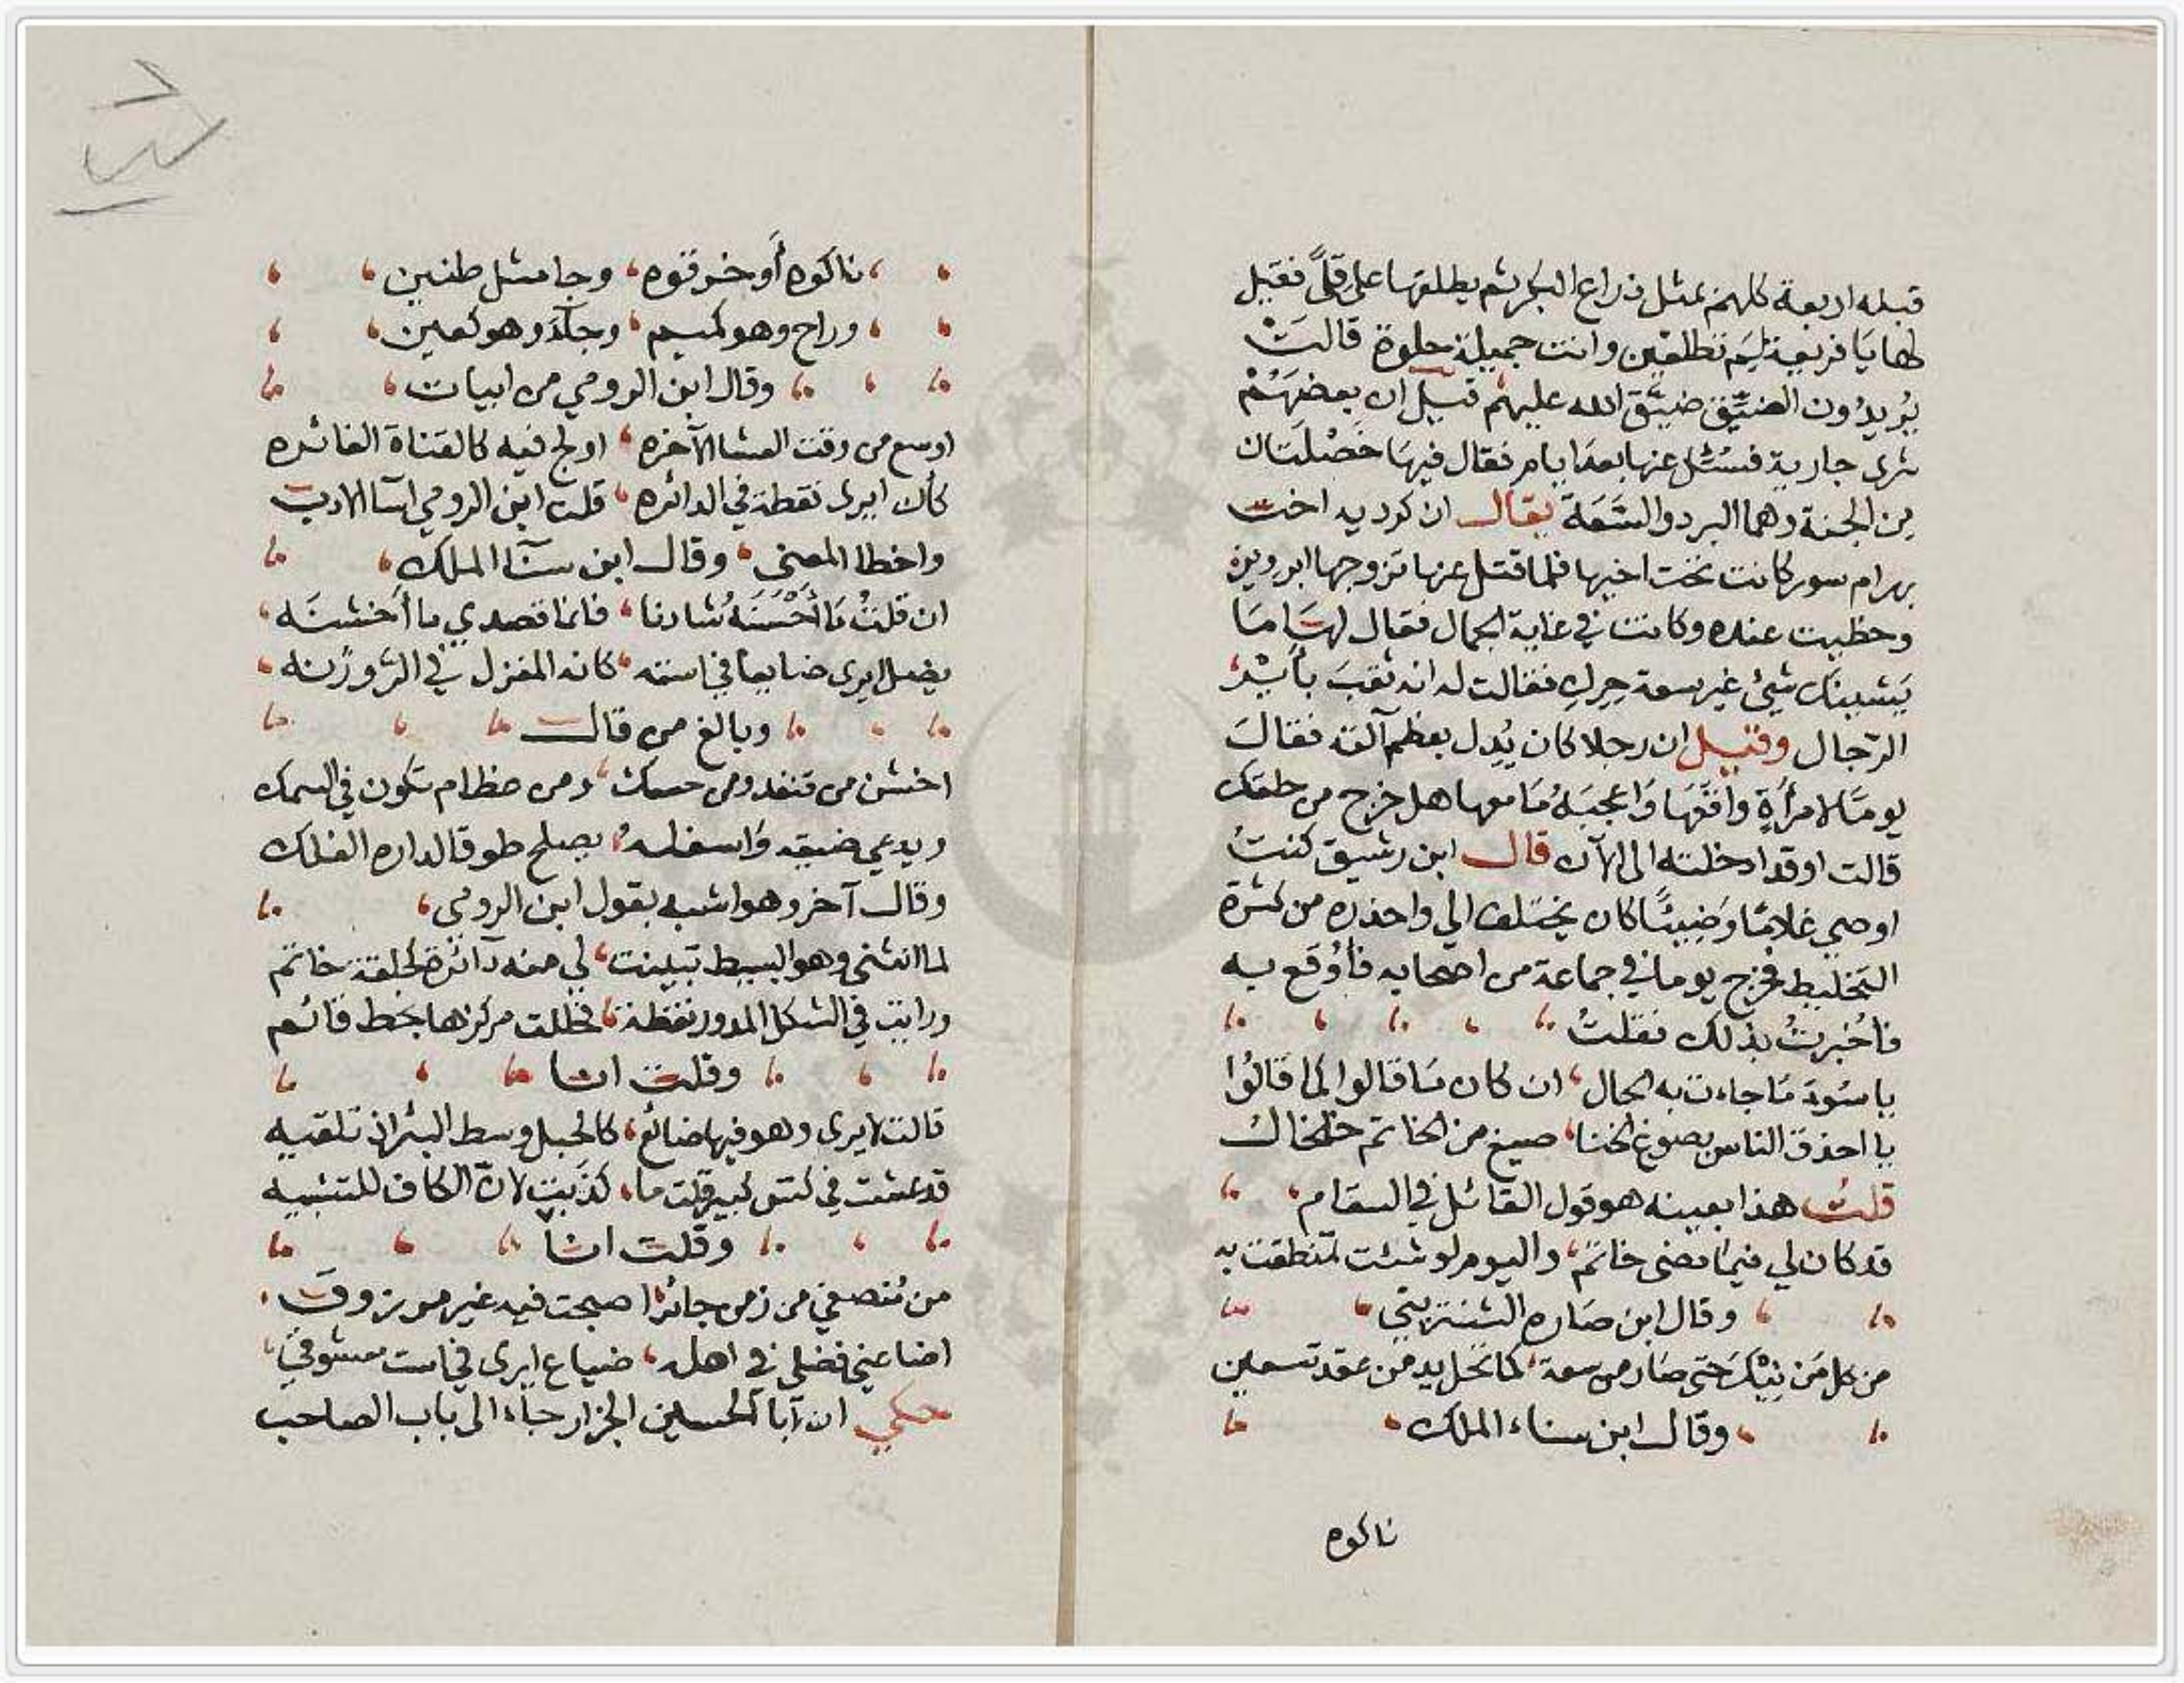 قبله اربعة كلهم بمثل ذراع البكر ثم يطلقها على قلىً فقيل
لها يا فريعة لِمَ تطلقين وانت جميلة حلوة قالَتْ
يُريدُون الضيّق ضيّق الله عليهُم قيل ان بعضهُمْ
شرى جارية فسُئل عنها بعد ايام فقال فيها خصْلتان
من الجنة وهما البرد والسَّعَة يقال ان كرديه اخت
بهرام سور كانت تحت اخيها فلما قتل عنها تزوجها ابرويز
وحظيت عنده وكانت في غاية الجمال فقال لها مَا
يَشينك شيئ غير سعة حِرِك فقالت له انه ثقب بأيْر
الرّجال وقيل ان رجلا كان يُدِل بعظم آلته فقالَ
يومًا لامرأةٍ واقَعَها وَاعجبَهُ مَا معها هل خرج من حلقك
قالت اوقد ادخلته الى الآن قال ابن رشيق كنتُ
اوصي غلامًا وَضِيئًا كان يختلف الي واحذره من كثرة
التخليط فخرج يوما في جماعة من اصحابه فأُوقع به
فاُخبرتُ بذلك فقلتُ
يا سُوءَ مَا جاءت به الحال، ان كان مَا قالوا كما قالُوا
يا احذق الناس بصوغ الخنا، صيغ من الخاتم خلخال
قلتُ هذا بعينه هو قول القائل في السقام
قد كان لي فيما مضى خاتم، واليوم لو شئت تمنطقت به
وقال ابن صاره الشنتريني
من كل مَن نِيْكَ حتى صَار من سعة، كما تحل يد من عقد تسعين
وقال ابن سناء الملك
ناكوه
ناكوه أَو خرقوه، وجا مثل طنين
وراح وهو كميم، وجآءَ وهو كعين
وقال ابن الرومي من ابيات
اوسع من وقت العشا الآخره، اولج فيه كالقناة الغائره
كأن ايرى نقطة في الدائره، قلت ابن الرومي اسآ الادب
واخطا المعنى، وقال ابن سنآ الملك
ان قلتُ مَا أَحْسَنَهُ شادنا، فانما قصدي ما أَخشنَه
يضل ايرى ضايعا في استه، كانه المغزل في الرَّوزنه
وبالغ من قال
اخشن من قنفد ومن حسك، ومن عظام تكون في السمك
ويدعي ضيقه وَاسفله، يصلح طوقا لداره الفلك
وقال آخر وهو اشبه بقول ابن الرومي
لما انثنى وهو البسيط تبينت، لي منه دآئرة كحلقة خاتم
ورايت في الشكل المدور نقطة، فخللت مركزها بخط قائم
وقلت انا
قالت لايرى وهو فيها ضائع، كالحبل وسط البئر اذ تلقيه
قد عشت في كس كبير قلت ما، كذبت لان الكاف للتشبيه
وقلت انا
من مُنصفي من زمن جائر، اصبحت فيه غير مرزوق
اضاعني فضلي في اهله، ضياع ايرى في است معشوقي
حكي ان ابا الحسين الجزار جاء الى باب الصاحب